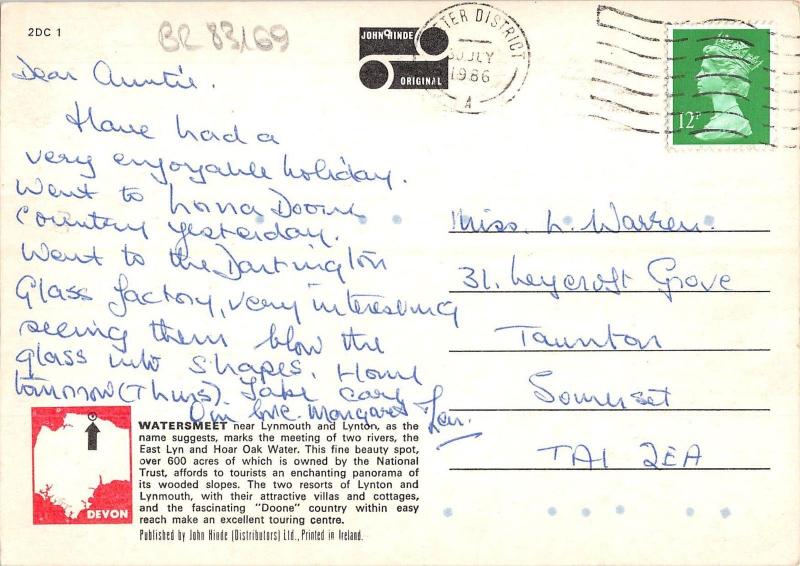 2DC 1
BR 83/69
JOHN HINDE
ORIGINAL
TER DISTRICT
30 JLY
1986
A
12P
Dear Auntie.
Have had a
very enjoyable holiday.
Went to Lorna Doone
Country yesterday.
Went to the Dartington
Glass factory, very interesting
seeing them blow the
glass into shapes. Home
tomorrow (Thurs). Take care
Our love. Margaret
Len.
Miss. L. Warren.
31. Leycroft Grove
Taunton
Somerset
TA1 2EA
DEVON
WATERSMEET near Lynmouth and Lynton, as the
name suggests, marks the meeting of two rivers, the
East Lyn and Hoar Oak Water. This fine beauty spot,
over 600 acres of which is owned by the National
Trust, affords to tourists an enchanting panorama of
its wooded slopes. The two resorts of Lynton and
Lynmouth, with their attractive villas and cottages,
and the fascinating "Doone" country within easy
reach make an excellent touring centre.
Published by John Hinde (Distributors) Ltd., Printed in Ireland.